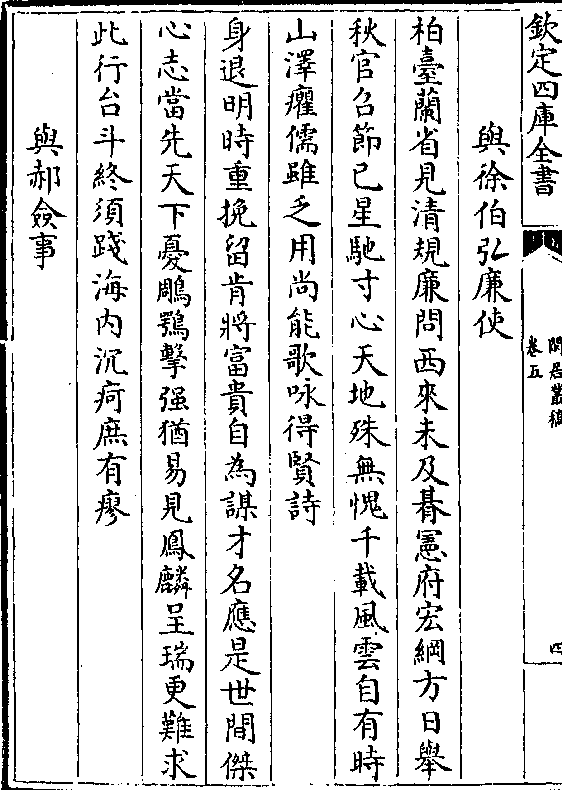 欽定四庫全書
閒居叢稿
卷五
四
與徐伯弘廉使
柏臺蘭省見清規廉問西來未及朞憲府宏綱方日舉
秋官召節已星馳寸心天地殊無愧千載風雲自有時
山澤癯儒雖乏用尚能歌咏得賢詩
身退明時重挽留肯將富貴自為謀才名應是世間傑
心志當先天下憂鵰鶚擊强猶易見鳳麟呈瑞更難求
此行台斗終須踐海内沉疴庶有瘳
與郝僉事